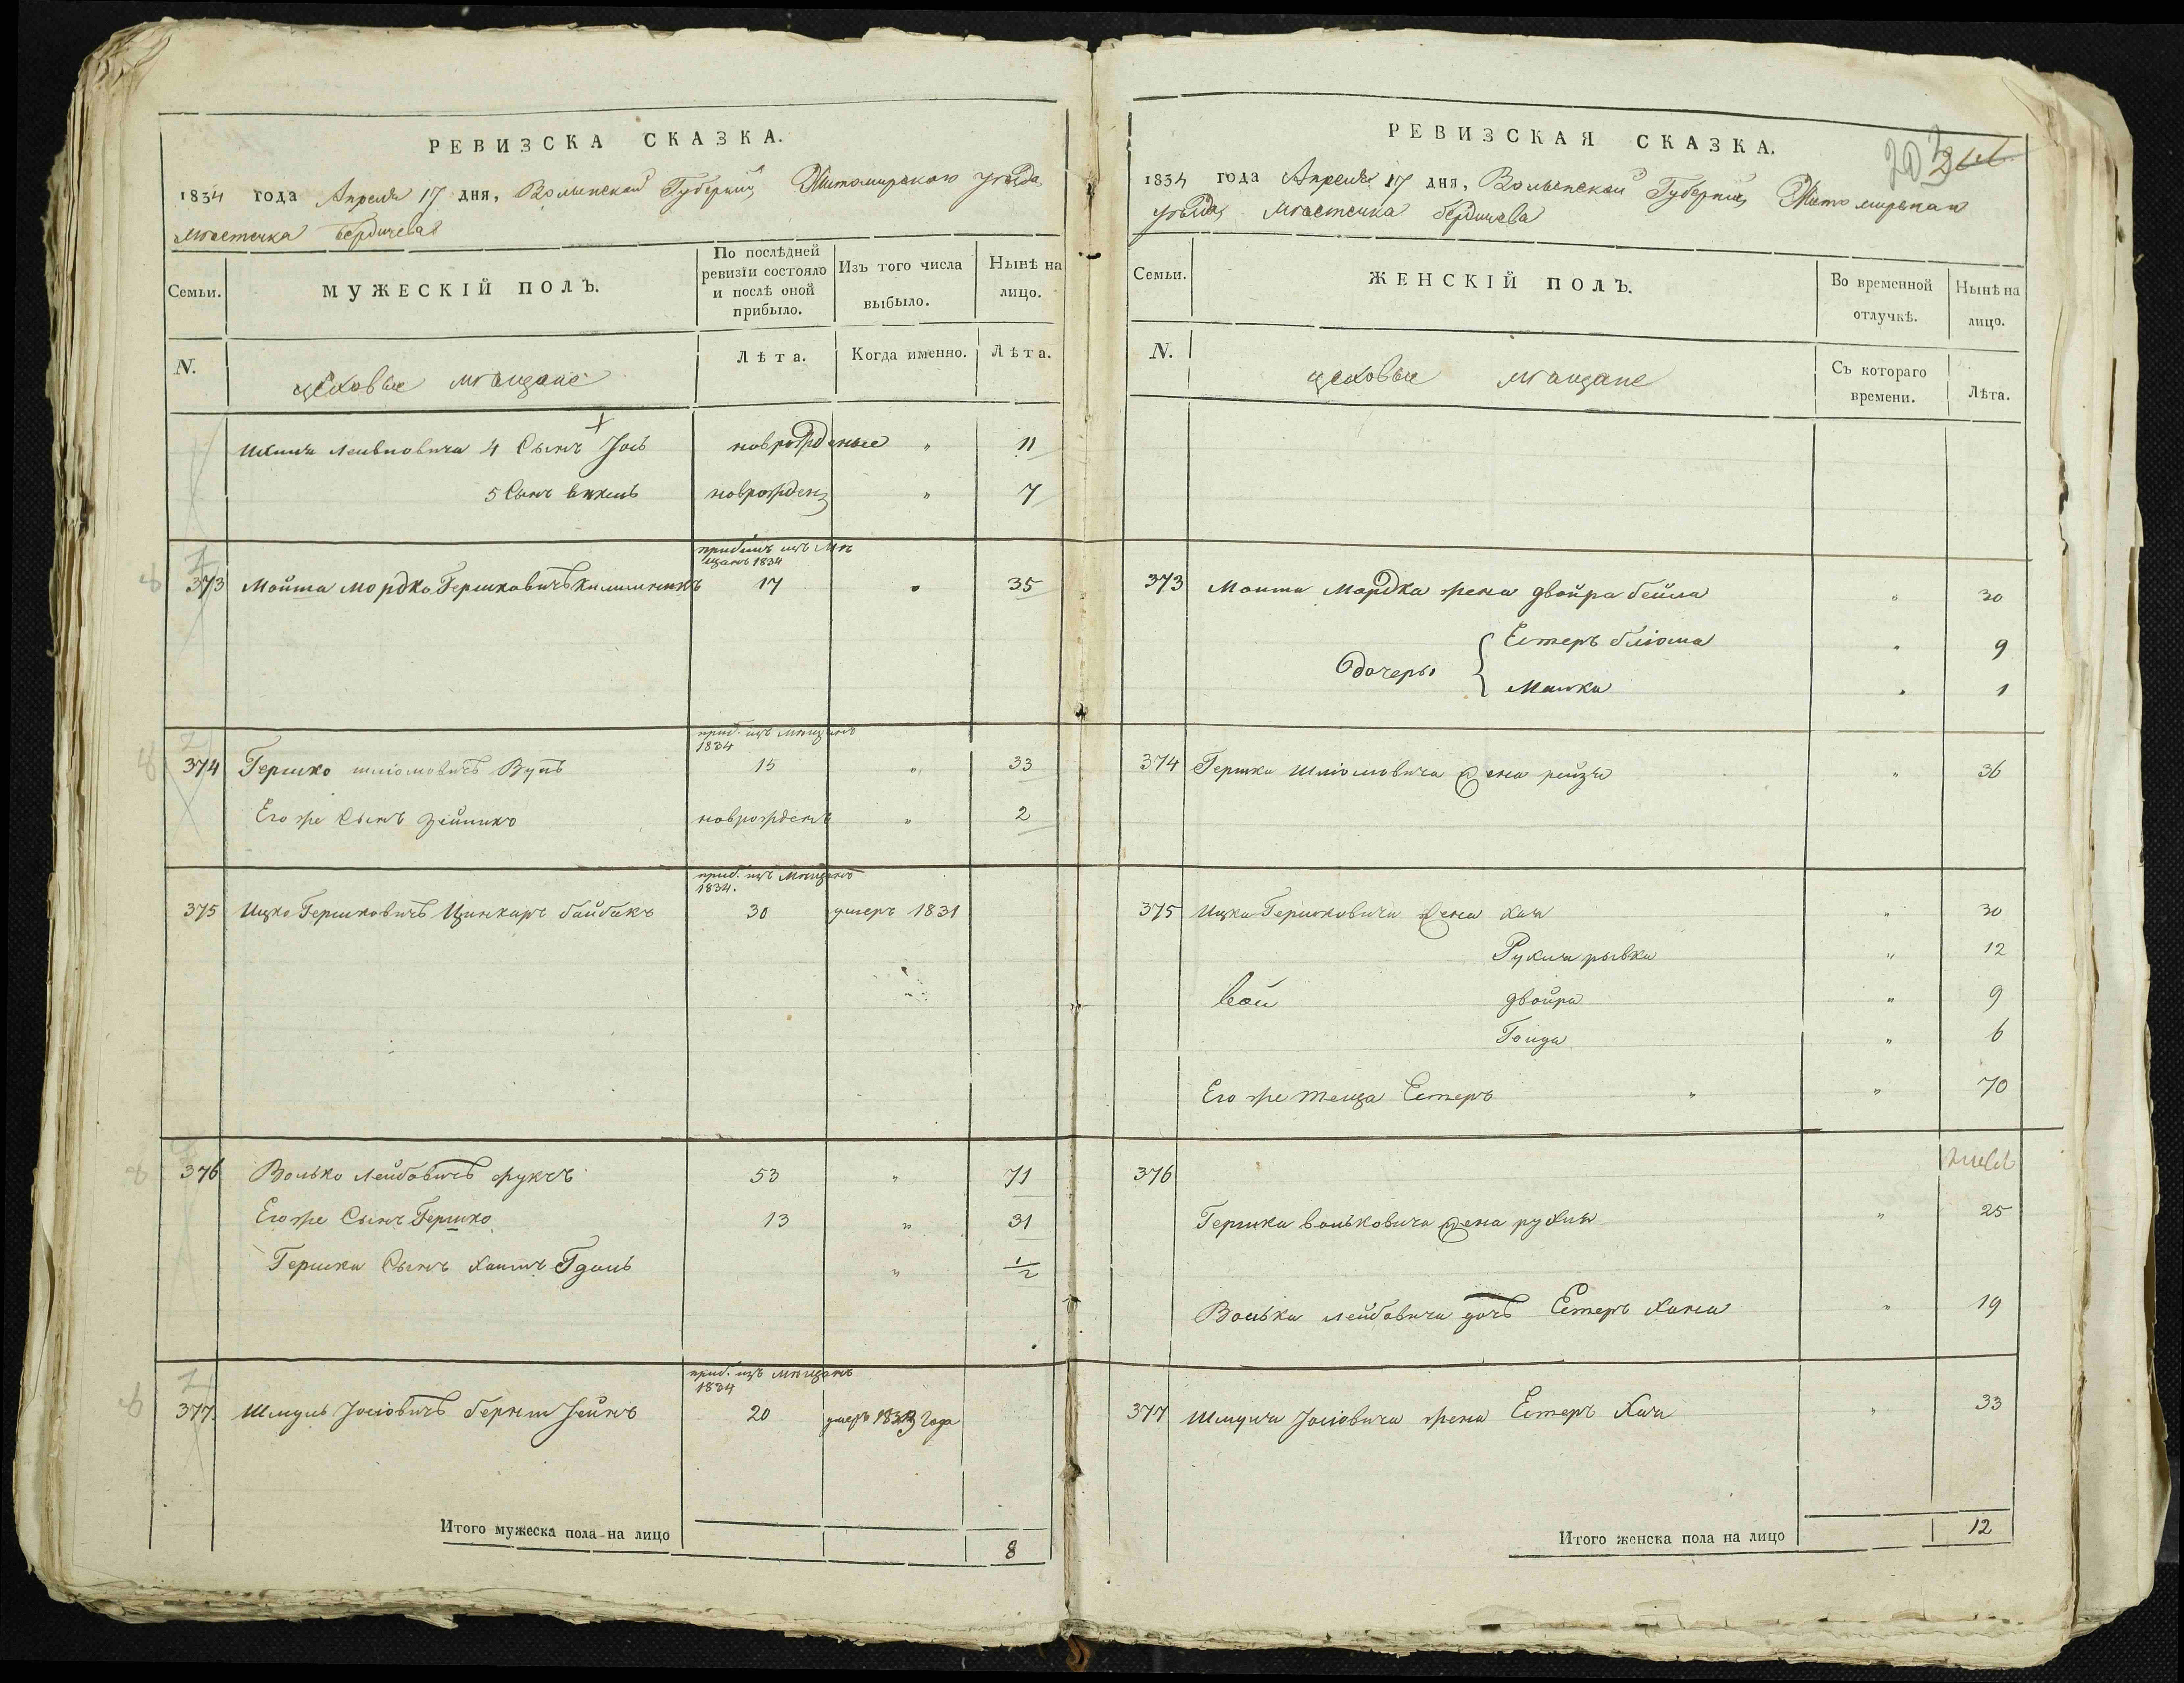 РЕВИЗСКА СКАЗКА.
1834 года Апреля 17 дня, Волынской Губерніи Житомирскаго уѣзда
мѣстечка Бердичева
Семьи.
МУЖЕСКІЙ ПОЛЪ.
По послѣдней
ревизіи состояло
и послѣ оной
прибыло.
Изъ того числа
выбыло.
Нынѣ на
лицо.
N.
цеховые мѣщане
Лѣта.
Когда именно.
Лѣта.
4 Сынъ Іось новорожденые " 11
5 Сынъ новрожден " 7
прибылъ изъ Мѣ
щанъ 1834
373 Мойта Мордко Гершковичъ 17 " 35
приб. изъ мѣщанъ
1834
374 Гершко Шліомовичъ 15 " 33
Его же Сынъ новрожденъ " 2
приб. изъ Мѣщанъ
1834.
375 Ицко Гершковичъ Цинкаръ байбакъ 30 умеръ 1831
376 Волько Лейбовичъ 53 " 71
Его же Сынъ Гершко 13 " 31
Гершки Сынъ Хаимъ Гдаль " 1/2
приб. изъ мѣщанъ
1834
377 Шмуль Іосіовичъ 20 умеръ года
Итого мужеска пола на лицо 8
РЕВИЗСКАЯ СКАЗКА.
203
1834 года Апреля 17 дня, Волынской Губерніи Житомирскаго
уѣзда мѣстечка Бердичева
Семьи.
ЖЕНСКІЙ ПОЛЪ.
Во временной
отлучкѣ.
Нынѣ на
лицо.
N.
цеховые мѣщане
Съ котораго
времени.
Лѣта.
373 Мошта Мордка жена двойра бейла " 30
Естеръ бліома " 9
дочеры
Малка " 1
374 Гершки Шліомовича жена рейзя " 36
375 Ицка Гершковича жена Хая " 30
Рухля рывка " 12
двойра " 9
" 6
Его же теща Естеръ " " 70
376
Гершка вольковича жена рухля " 25
Волька лейбовича дочь Естеръ Хана " 19
377 Шмуля Іосіовича жена Естеръ Хая " 33
Итого женска пола на лицо 12